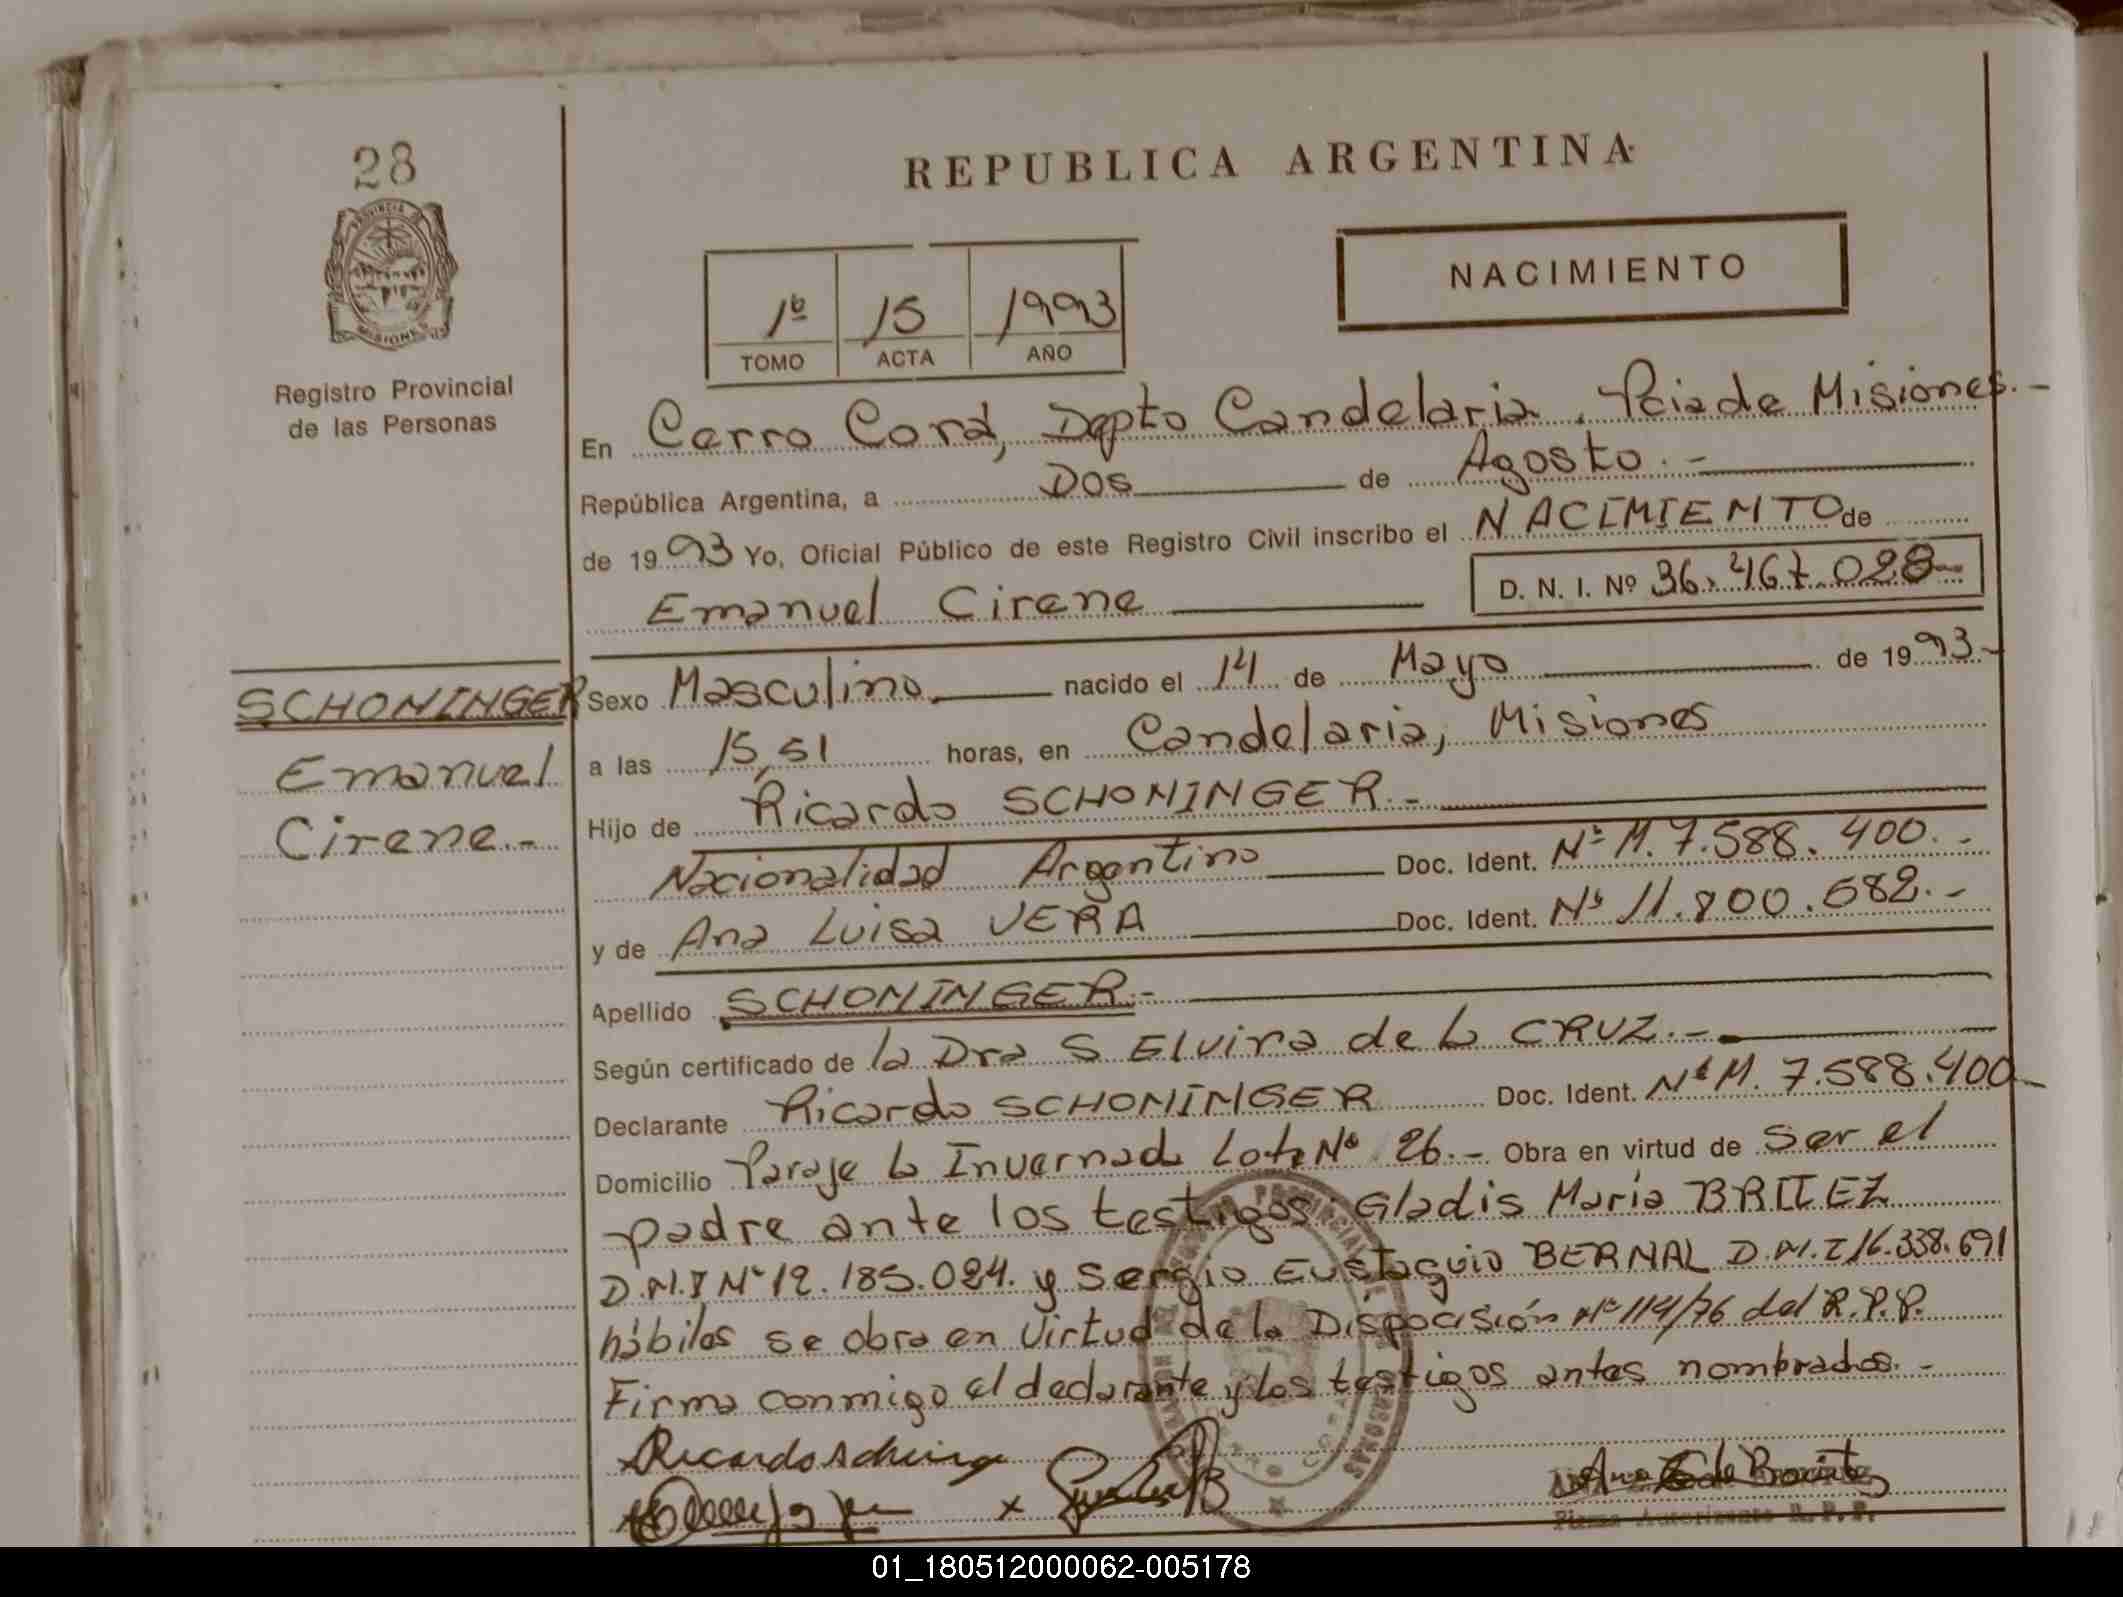 28
PROVINCIA DE
MISIONES
Registro Provincial
de las Personas
SCHONINGER
Emanuel
Cirene.-
REPUBLICA ARGENTINA
NACIMIENTO
1º 15 1993
TOMO ACTA AÑO
En Cerro Corá, Depto Candelaria. Pcia de Misiones.-
República Argentina, a Dos de Agosto.-
de 1993 Yo, Oficial Público de este Registro Civil inscribo el NACIMIENTO de
Emanuel Cirene D. N. I. Nº 36.467.028-
Sexo Masculino nacido el 14 de Mayo de 1993-
a las 15,51 horas, en Candelaria, Misiones
Hijo de Ricardo SCHONINGER.-
Nacionalidad Argentino Doc. Ident. Nº M. 7.588.400.-
y de Ana Luisa VERA Doc. Ident. Nº 11.800.682.-
Apellido SCHONINGER.-
Según certificado de la Dra S Elvira de la CRUZ.-
Declarante Ricardo SCHONINGER Doc. Ident. Nº M. 7.588.400-
Domicilio Paraje la Invernada Lote Nº 26.- Obra en virtud de Ser el
padre ante los testigos: Gladis María BRITEZ
D.N.I Nº 12.185.024. y Sergio Eustaquio BERNAL D.N.I 16.338.691
hábiles se obra en virtud de la Disposición Nº 114/76 del R.P.P.
Firma conmigo el declarante y los testigos antes nombrados.-
01_180512000062-005178